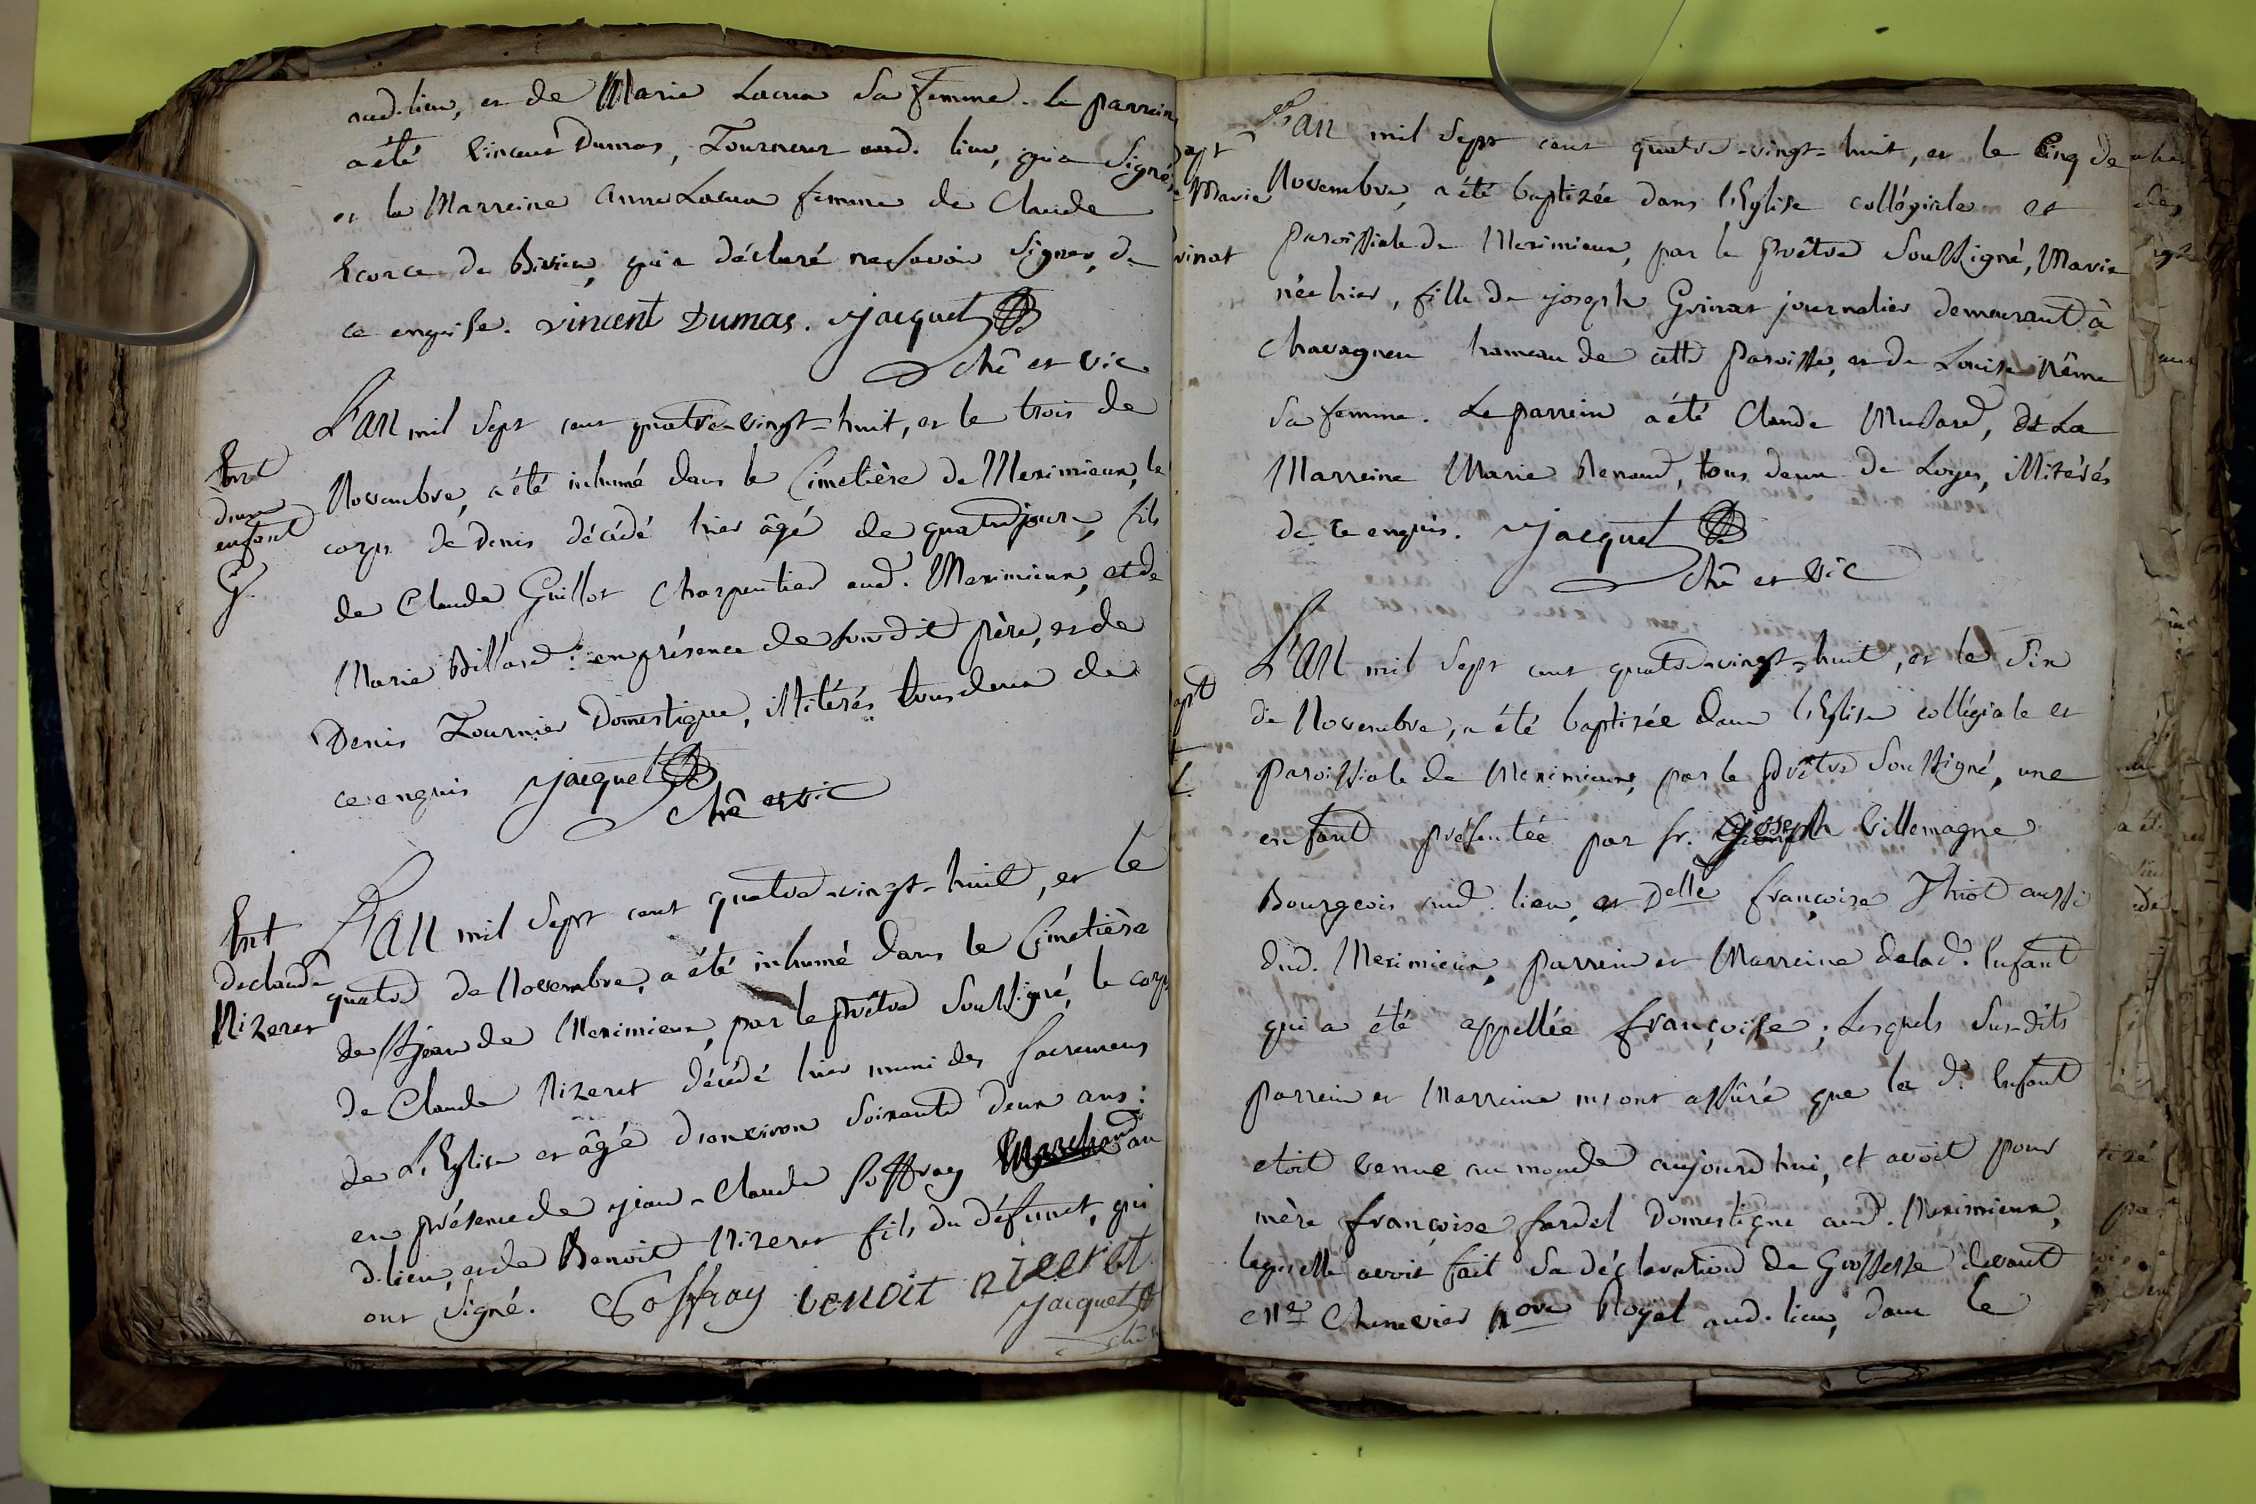 aud. lieu, et de Marie Lacua sa femme. le parrein
a été Vincent Dumas, Tourneur aud. lieu, qui a signé,
et la Marreine anne Lacua femme de Claude
Ecorce de Birieu, qui a déclaré ne savoir signer, de
ce enquise. vincent Dumas. Jacquet
chê et vic
Ent
d'un
enfant
G.
L'an mil sept cent quatre-vingt-huit, et le trois de
Novembre, a été inhumé dans le Cimetière de Meximieux, le
corps de Denis décédé hier âgé de quatre jours, fils
de Claude Guillot Charpentier aud. Meximieux, et de
Marie Billard: en présence de son dit père, et de
Denis Tournier Domestique, illitérés tous deux de
ce enquis Jacquet
chê et vic
Ent
de claude
Nizeret
L'an mil sept cent quatre-vingt-huit, et le
quatre de Novembre, a été inhumé dans le Cimetière
de St jean de Meximieux, par le prêtre soussigné, le corps
de Claude Nizeret décédé hier muni des sacremens
de L'Eglise et âgé d'environ soixante deux ans:
en présence de jean-Claude Poffray Marchand au
d. lieu, et de Benoit Nizeret fils du défunct, qui
ont signé. Poffray benoit nizeret
Jacquet
chê
apt
Marie
Grinat
L'an mil sept cent quatre-vingt-huit, et le Cinq de
Novembre, a été baptizée dans l'Eglise collégiale et
paroissiale de Meximieux, par le prêtre soussigné, Marie
née hier, fille de joseph Grinat journalier demeurant à
chavagneu hameau de cette paroisse, et de Louise Nême
sa femme. Le parrein a été Claude Musard, et La
Marreine Marie Renaud, tous deux de Loyes, illitérés
de ce enquis. Jacquet
chê et vic
apt
L'an mil sept cent quatre-vingt-huit, et le six
de Novembre, a été baptizée dans l'Eglise collégiale et
paroissiale de Meximieux, par le prêtre soussigné, une
enfant présentée par sr. joseph Villemagne
Bourgeois aud. lieu, et Delle françoise Thiot aussi
dud. Meximieux, parrein et Marreine de lad. Enfant
qui a été appellée françoise; Lesquels sus-dits
parrein et Marreine m'ont assûré que la d. Enfant
etoit venue au monde aujourd'hui, et avoit pour
mère françoise fardel Domestique aud. Meximieux,
laquelle avoit fait sa déclaration de Grossesse devant
Me Chenevier nore Royal aud. lieu, dans le